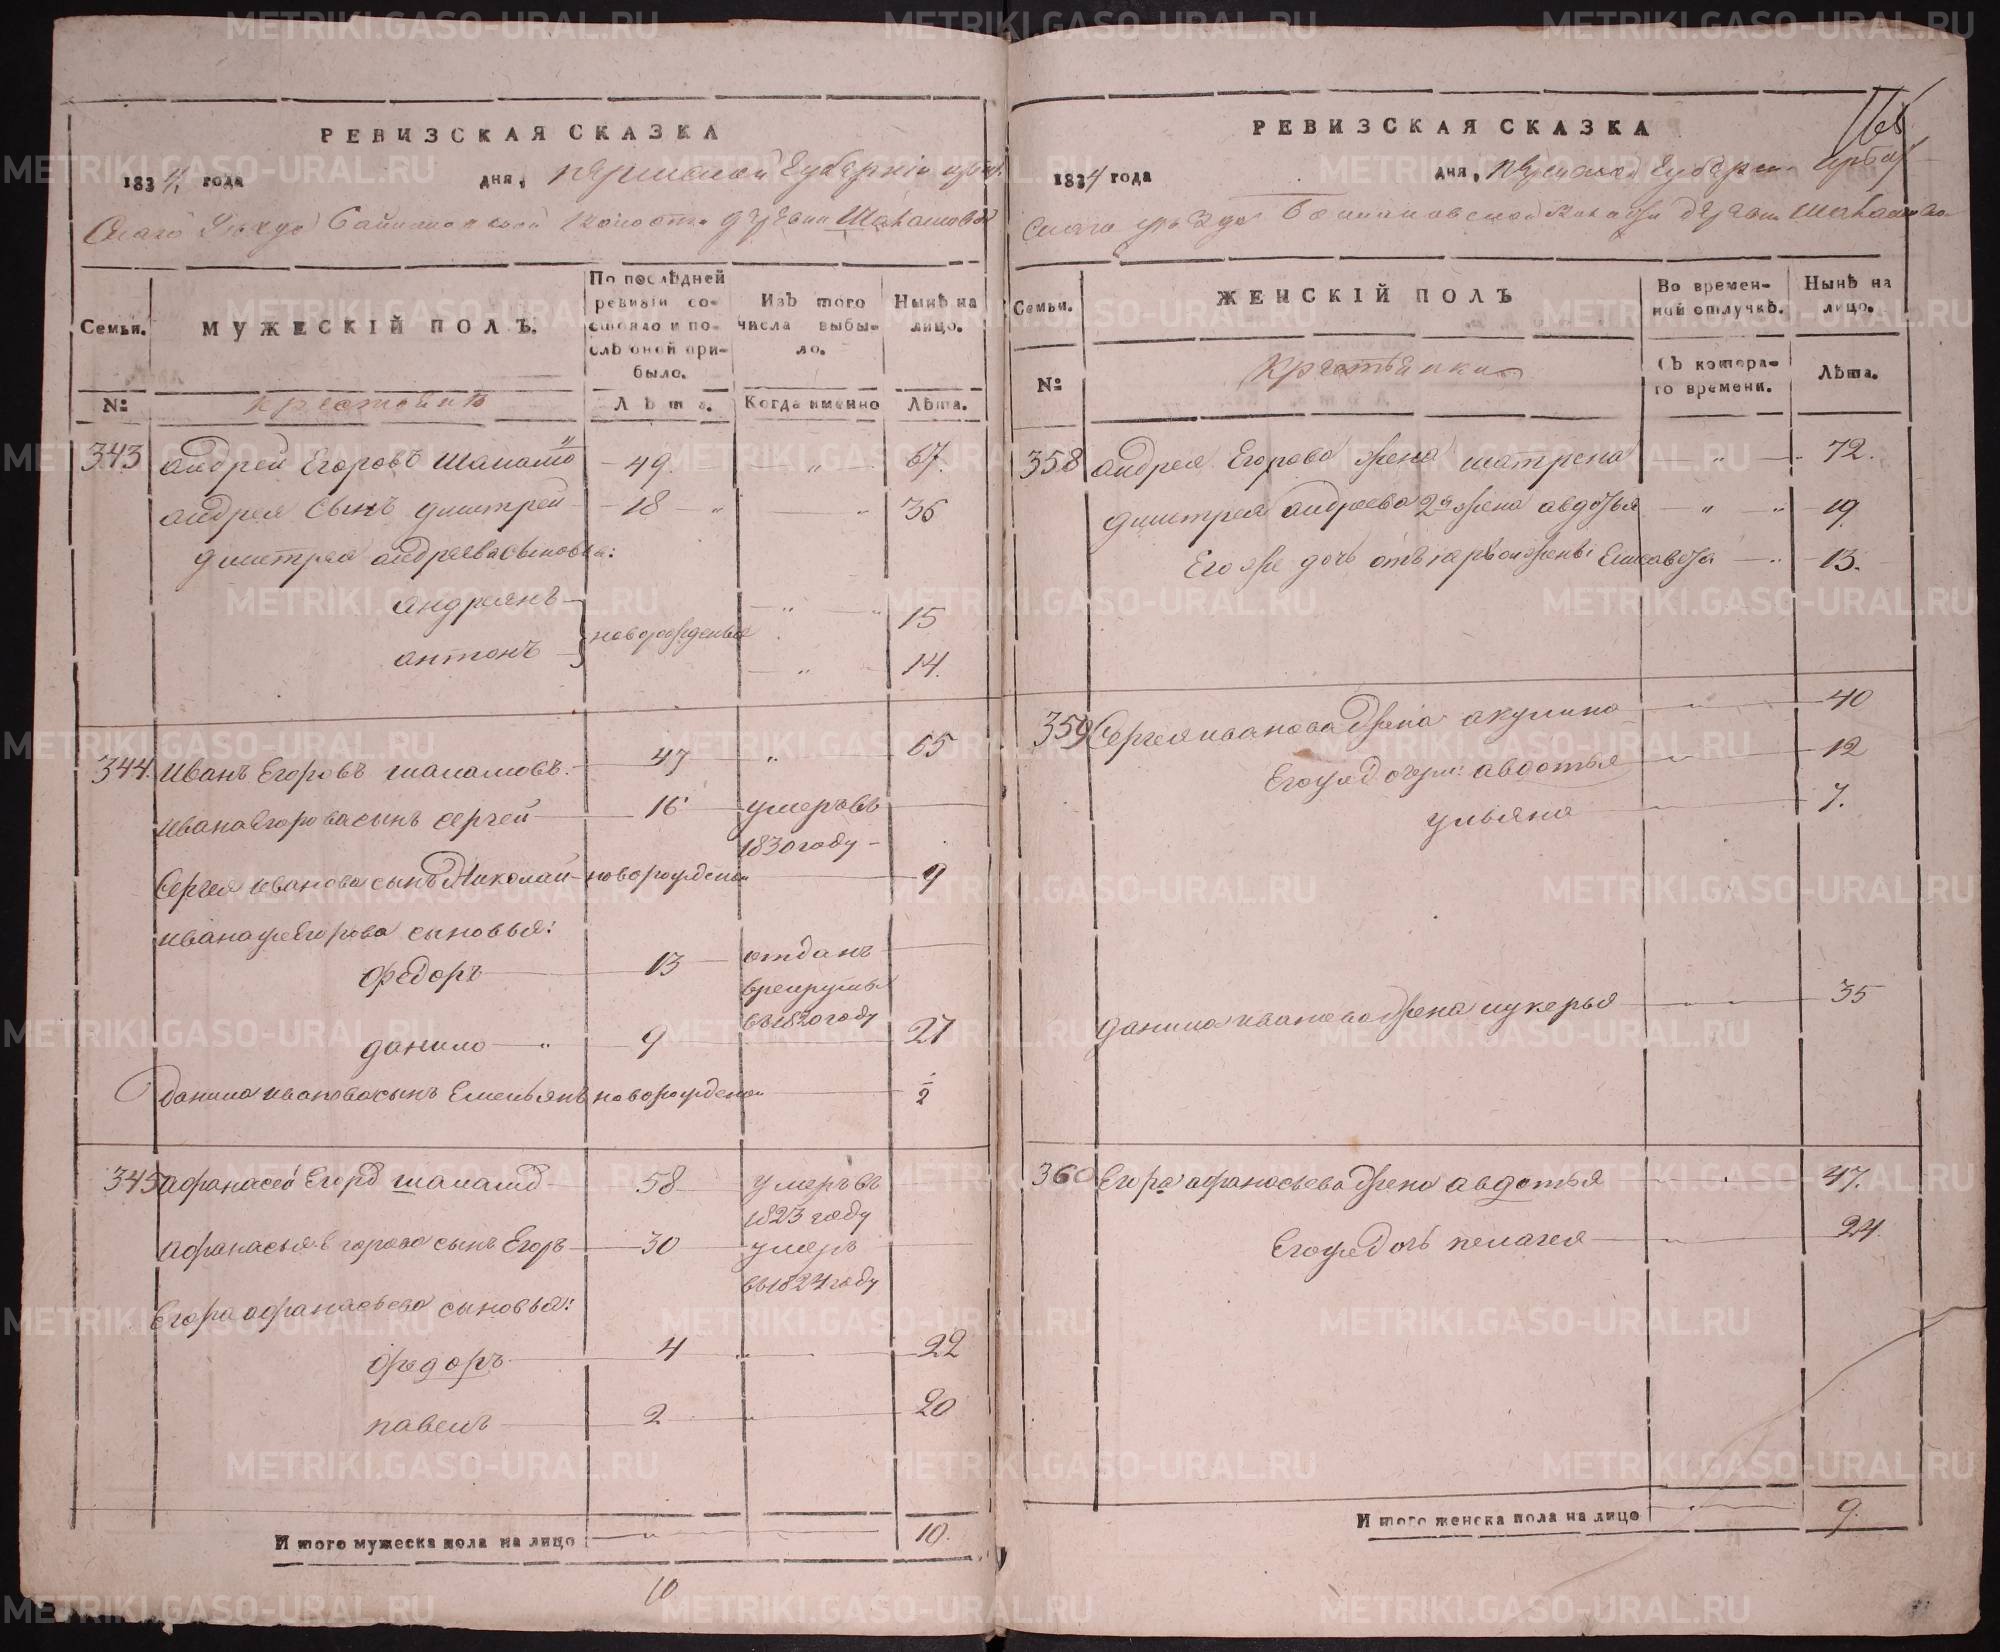 РЕВИЗСКАЯ СКАЗКА
1834 года дня, Пермской Губернїи Ирбит
скаго Уезда волости деревни Шаламовой
Семьи.
МУЖЕСКІЙ ПОЛЪ.
По послѣдней ревизіи состояло и послѣ оной прибыло.
Изъ того числа выбыло.
Нынѣ на лицо.
№
крестьянъ
Лѣта.
Когда именно
Лѣта.
343 андрей Егоровъ Шаламо 49. " 67.
андрея сынъ дмитрей 18 " " 36
дмитрея андреева сыновья:
андреянъ " " 15
новорожденые
антонъ " 14.
344. иванъ Егоровъ шаламовъ. 47 " 65
ивана Егорова сынъ сергей 16 умеръ въ
1830 году
Сергея иванова сынъ Николай новорожденой 9
ивана же Егорова сыновья:
федоръ 13 отданъ
в рекруты
въ 1820 году
данило " 9 27
данила иванова сынъ Емельянъ новорожденой 1/2
345 афанасей Егор шалам 58 умеръ въ
1823 году
афанасья Егорова сынъ Егоръ 30 умеръ
въ 1824 году
Егора афанасьева сыновья:
федоръ 4 " 22
павелъ 2 " 20
И того мужеска пола на лицо " 10.
10
РЕВИЗСКАЯ СКАЗКА
1834 года дня, Пермской Губерни Ирбит
скаго уезда волости деревни Шаламово
Семьи.
ЖЕНСКІЙ ПОЛЪ
Во временной отлучкѣ.
Нынѣ на лицо.
№
Крестьянки
Съ котораго времени.
Лѣта.
358 андрея Егорова жена матрена " 72.
дмитрея андреева 2я жена авдотья " " 19
Его же дочь отъ первой жены Елисавета " 13.
359 Сергея иванова жена акулина " 40
Его же дочери: авдотья " 12
ульяна 7.
данила иванова жена лукерья " 35
360 Егора афанасьева жена авдотья " 47.
Его же дочь пелагея " 24.
И того женска пола на лицо " 9.
METRIKI.GASO-URAL.RU